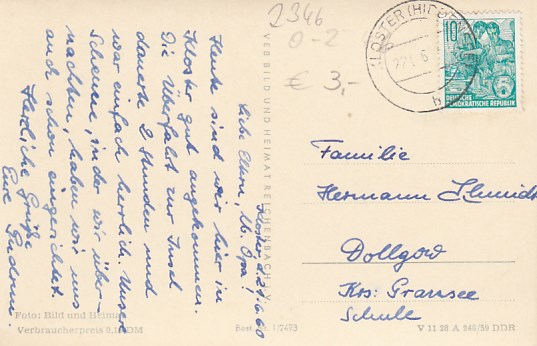 2346
0-2
€ 3,-
KLOSTER (HIDDENSEE)
b
10
DEUTSCHE
DEMOKRATISCHE REPUBLIK
Kloster, d. 21.6.60
Liebe Eltern, lb. Opa!
Heute sind wir hier in
Kloster gut angekommen.
Die Überfahrt zur Insel
dauerte 2 Stunden und
war einfach herrlich. Unsere
Scheune, in der wir über-
nachten, haben wir uns
auch schon eingerichtet.
Herzliche Grüße
Eure Gudrun.
VEB BILD UND HEIMAT REICHENBACH I. V.
Familie
Hermann Schmidt
Dollgow
Krs. Gransee
Schule
Foto: Bild und Heimat
Verbraucherpreis DM
V 11 28 A 246/59 DDR